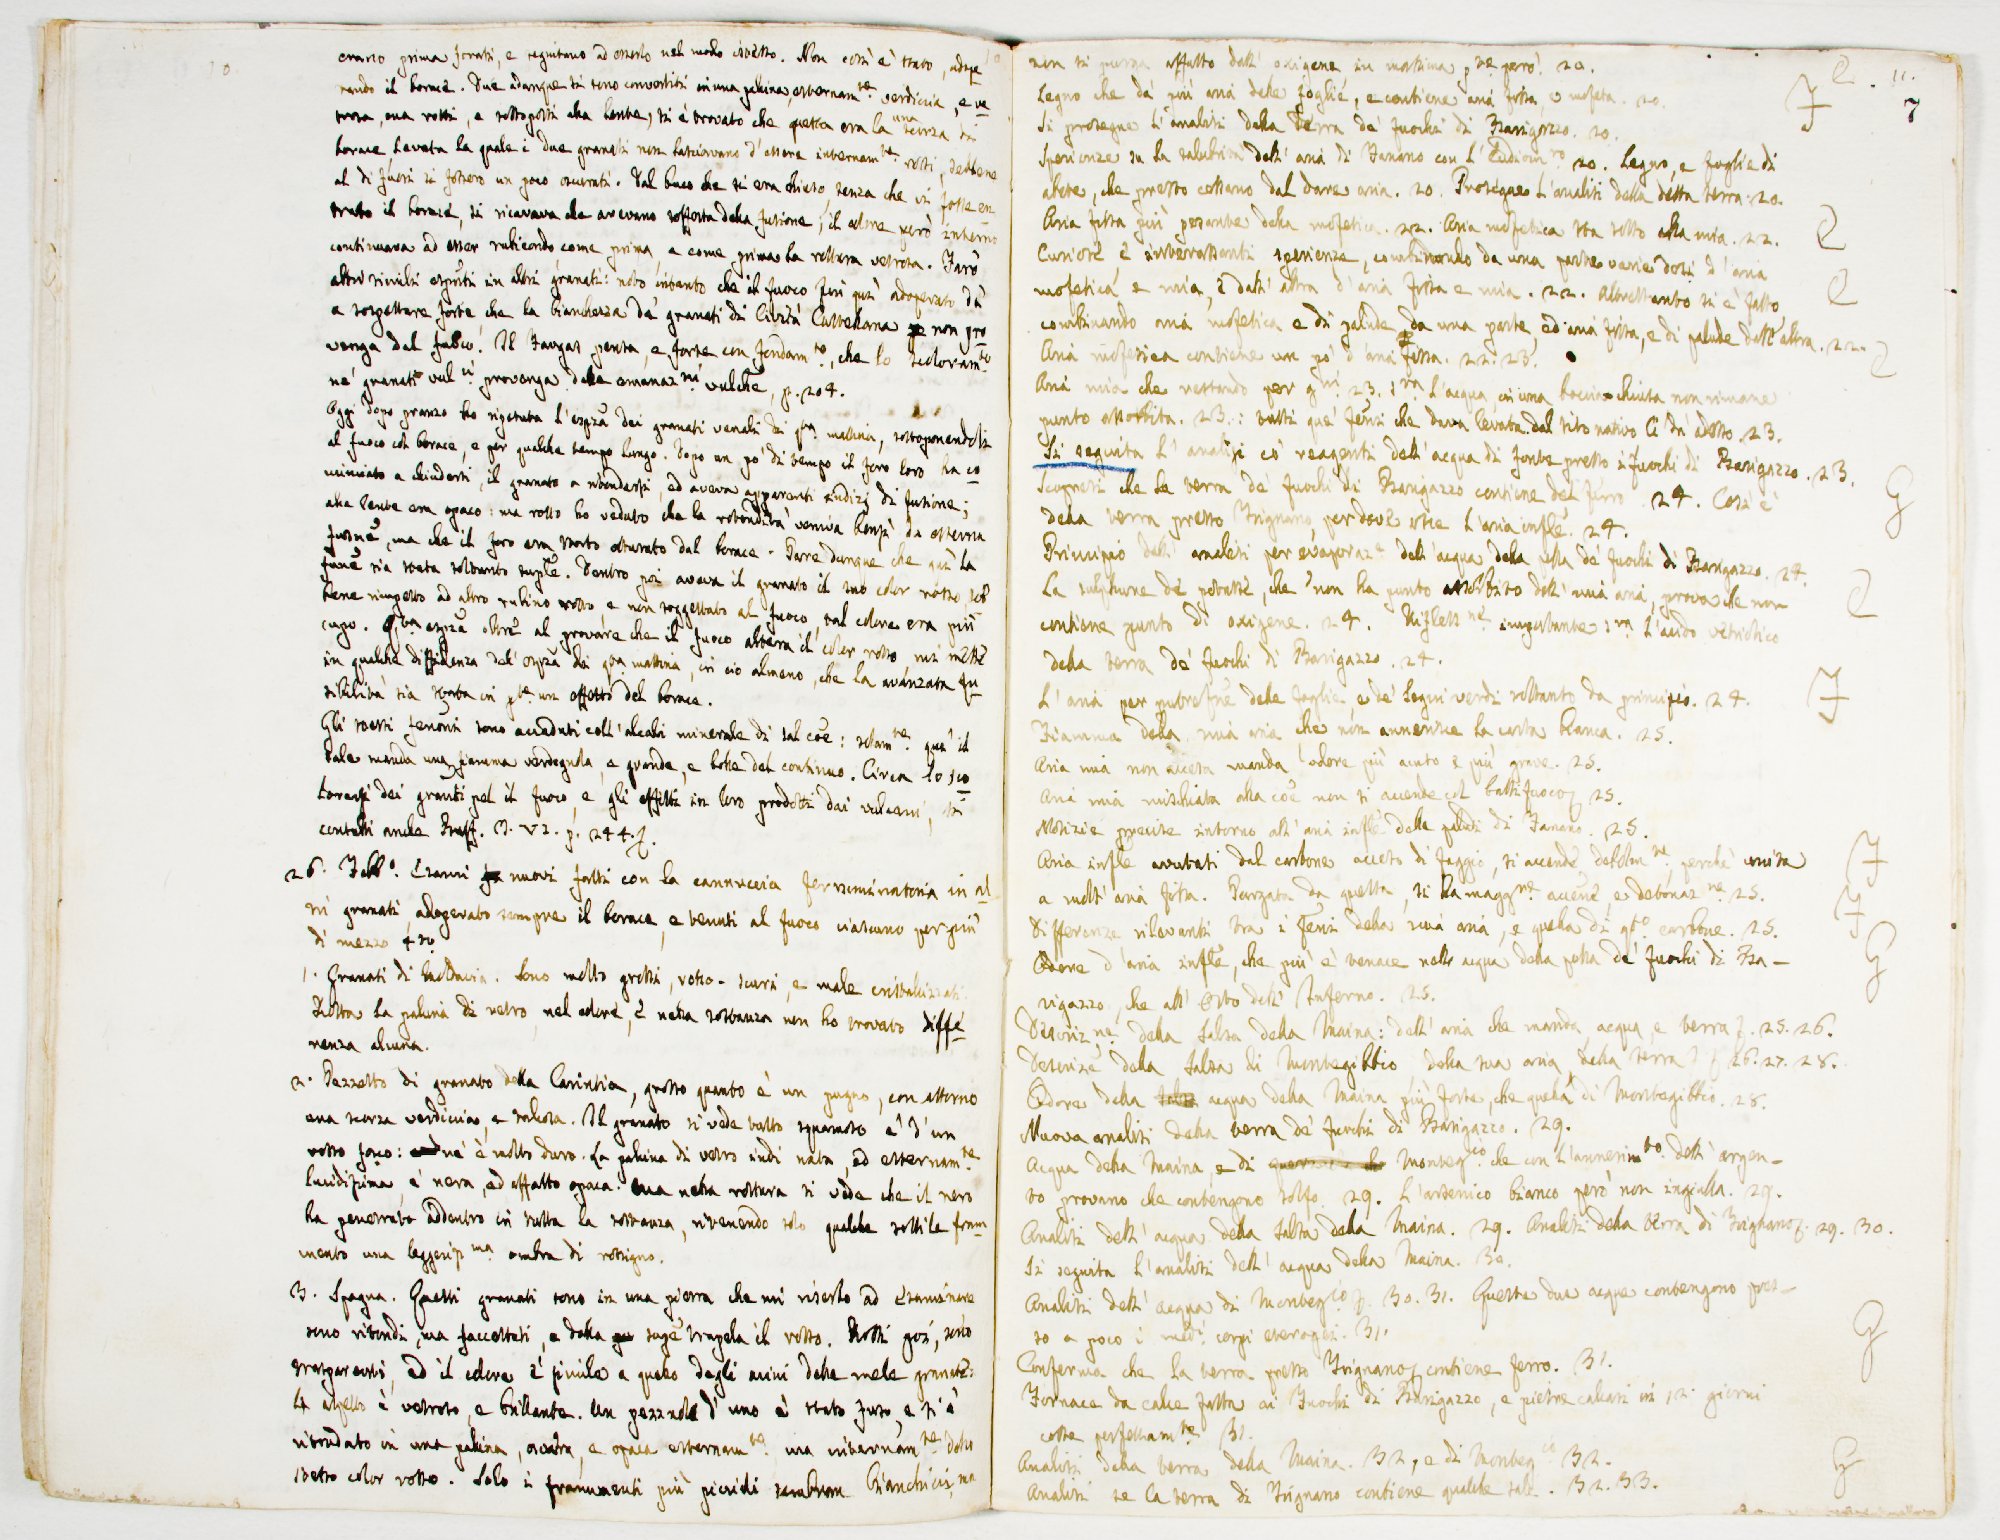 10.
erano prima forati, e seguitano ad esserlo nel modo istesso. Non così è stato, adope
rando il borace. Due adunque si sono convertiti in una pallina, esternam.te verdiccia, e ve
trosa, ma rotti, e sottoposti alla lente, si è trovato che questa era la una scorza di
borace, levata la quale i due granati non lasciavano d'essere internam.te rossi, sebbene
al di fuori si fossero un poco oscurati. Dal buco che si era chiuso, senza che vi fosse en
trato il borace, si ricavava che avevano sofferta della fusione, il colore però interno
continuava ad esser rubicondo come prima, e come prima la rottura vetrosa. Farò
altri simili esp.ti in altri granati: noto intanto che il fuoco fin qui adoperato dà
a sospettare forte che la bianchezza de' granati di Civita Castellana non pro
venga dal fuoco. Il Faujas pensa, e forse con fondam.to, che lo scoloram.to
ne' granati vul.ci provenga dalle emanaz.ni vulche, p. 204.
Oggi dopo pranzo ho ripetuta l'espza dei granati venali di q.ta mattina, sottoponendoli
al fuoco col borace, e per qualche tempo lungo. Dopo un po' di tempo il foro loro ha co
minciato a chiudersi, il granato a ritondarsi, ed aveva apparenti indizj di fusione;
alla lente era opaco: ma rotto ho veduto che la rotondità veniva bensì da esterna
fusne, ma che il foro era stato otturato dal borace. Pare dunque che qui la
fusne sia stata soltanto suple. Dentro poi aveva il granato il suo color rosso, seb
bene rimpetto ad altro rubino rotto e non soggettato al fuoco, tal colore era più
cupo. Q.ta espza oltre al provare che il fuoco altera il color rosso, mi mette
in qualche diffidenza dell'espza dei q.ta mattina, in ciò almeno, che la avanzata fu
sibilità sia stata in p.te un effetto del borace.
Gli stessi fenoni sono accaduti coll'alcali minerale di sal coe: solam.te qui il
sale manda una fiamma verdognola, e grande, e bolle del continuo. Circa lo sco
lorarsi dei graniti pel il fuoco, e gli effetti in loro prodotti dai vulcani, si
consulti anche Buff. M. VI. p. 244.
26. Febb.o Esami nuovi fatti con la cannuccia ferruminatoria in al
tri granati, adoperato sempre il borace, e tenuti al fuoco ciascuno per più
di mezzo 4to
1. Granati di Moldavia. Sono molto grossi, rosso-scuri, e male cristallizzati.
Rotta la pallina di vetro, nel colore, e nella sostanza non ho trovato diffe
renza alcuna.
2. Pezzetto di granato della Carintia, grosso quanto è un pugno, con attorno
una scorza verdiccia, e talcosa. Il granato si vede tutto squamoso e d'un
rosso fosco: nè è molto duro. La pallina di vetro indi nata, ed esternam.te
lucidissima, è nera, ed affatto opaca. Ma nella rottura si vede che il nero
ha penetrato addentro in tutta la sostanza, ritenendo solo qualche sottile fram
mento una leggerissma ombra di rossigno.
3. Spagna. Questi granati sono in una pietra che mi riserbo ad esaminare
sono ritondi, ma faccettati, e dalla supe trapela il rosso. Rotti poi, sono
trasparenti, ed il colore è simile a quello degli acini delle mele granate.
L'aspetto è vetroso, e brillante. Un pezzuolo d'uno è stato fuso, e si è
ritondato in una pallina, oscura, e opaca esternam.te, ma internam.te dello
stesso color rosso. Solo i frammenti più piccioli sembran bianchicci, ma
11.
7
non si purga affatto dall'oxigene in massima p.te però. 20.
Legno che dà più aria delle foglie, e contiene aria fissa, e mofeta. 20.
Si prosegue l'analisi della terra de' fuochi di Barigazzo. 20.
Sperienze su la salubrità dell'aria di Fanano con l'Eudiom.ro 20. Legno, e foglie di
abete, che presto cessano dal dare aria. 20. Prosegue l'analisi della detta terra. 20.
Aria fissa più pesante della mofetica. 22. Aria mofetica sta sotto alla mia. 22.
Curiose e interessanti sperienze, combinando da una parte varie dosi d'aria
mofetica e mia, e dall'altra d'aria fissa e mia. 22. Altrettanto si è fatto
combinando aria mofetica e di palude da una parte, ed aria fissa, e di palude dall'altra. 22.
Aria mofetica contiene un po' d'aria fissa. 22. 23.
Aria mia che restando per g.ni 23. s.ra l'acqua in una boccia chiusa non rimane
punto assorbita. 23.: tutti que' feni che dava levata dal sito nativo li dà adesso. 23.
Si seguita l'analisi co' reagenti dell'acqua di fonte presso i fuochi di Barigazzo. 23.
Scopresi che la terra de' fuochi di Barigazzo contiene del ferro. 24. Così è
della terra presso Vrignano per dove esce l'aria infle. 24.
Principio dell'analisi per evaporaz.e dell'acqua della polla de' fuochi di Barigazzo. 24.
La sulphure de potasse, che non ha punto assorbito dell'mia aria, prova che non
contiene punto di oxigene. 24. Rifless.ne importante s.ra l'acido vetriolico
della terra de' fuochi di Barigazzo. 24.
L'aria per putrefne delle foglie, e de' legni verdi soltanto da principio. 24.
Fiamma della mia aria che non annerisce la carta bianca. 25.
Aria mia non accesa manda odore più acuto e più grave. 25.
Aria mia mischiata alla coe non si accende col battifuoco 25.
Notizie precise intorno all'aria infle delle paludi di Fanano. 25.
Aria infle avutasi dal carbone acceso di faggio, si accende debolm.te, perchè unita
a molt'aria fissa. Purgata da quella, si ha magg.re accene, e detonaz.ne 25.
Differenze rilevanti tra i feni della mia aria, e quella di q.to carbone. 25.
Odore d'aria infle, che più è tenace nell'acqua della polla de' fuochi di Ba-
rigazzo, che all'Orto dell'Inferno. 25.
Descriz.ne della Salsa della Maina: dell'aria che manda, acqua, e terra. 25. 26.
Descrize della Salsa di Montegibbio della sua aria, della terra 26. 27. 28.
Odore della acqua della Maina più forte, che quella di Montegibbio. 28.
Nuova analisi della terra de' fuochi di Barigazzo. 29.
Acqua della Maina, e di Monteg.io che con l'annerim.to dell'argen-
to provano che contengono solfo. 29. L'arsenico bianco però non ingialla. 29.
Analisi dell'acqua della Salsa della Maina. 29. Analisi della terra di Vrignano. 29. 30.
Si seguita l'analisi dell'acqua della Maina. 30.
Analisi dell'acqua di Monteg.io 30. 31. Queste due acque contengono pres-
so a poco i med.i corpi eterogei. 31.
Conferma che la terra presso Vrignano contiene ferro. 31.
Fornace da calce fatta ai Fuochi di Barigazzo, e pietre calcari in giorni
cotte perfettam.te 31.
Analisi della terra della Maina. 32, e di Monteg.io 32.
Analisi se la terra di Vrignano contiene qualche sale. 32. 33.